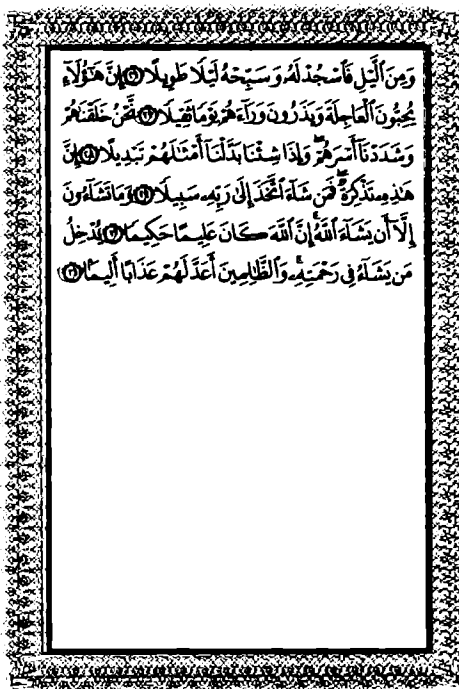 وَمِنَ ٱلَّيۡلِ فَٱسۡجُدۡ لَهُۥ وَسَبِّحۡهُ لَيۡلٗا طَوِيلًا ٢٦ إِنَّ هَٰٓؤُلَآءِ
يُحِبُّونَ ٱلۡعَاجِلَةَ وَيَذَرُونَ وَرَآءَهُمۡ يَوۡمٗا ثَقِيلٗا ٢٧ نَّحۡنُ خَلَقۡنَٰهُمۡ
وَشَدَدۡنَآ أَسۡرَهُمۡۖ وَإِذَا شِئۡنَا بَدَّلۡنَآ أَمۡثَٰلَهُمۡ تَبۡدِيلًا ٢٨ إِنَّ
هَٰذِهِۦ تَذۡكِرَةٞۖ فَمَن شَآءَ ٱتَّخَذَ إِلَىٰ رَبِّهِۦ سَبِيلٗا ٢٩ وَمَا تَشَآءُونَ
إِلَّآ أَن يَشَآءَ ٱللَّهُۚ إِنَّ ٱللَّهَ كَانَ عَلِيمًا حَكِيمٗا ٣٠ يُدۡخِلُ
مَن يَشَآءُ فِي رَحۡمَتِهِۦۚ وَٱلظَّٰلِمِينَ أَعَدَّ لَهُمۡ عَذَابًا أَلِيمَۢا ٣١